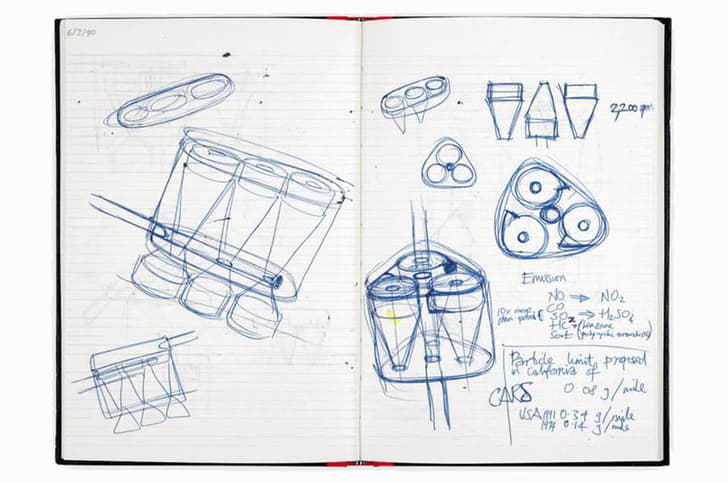 6/3/90
2,200 rpm
Emission
NO ⇒ NO₂
CO
10x more
than petrol {
SO₂ ⇒ H₂SO₄
HC + (benzene
Soot (polycyclic aromatics)
Particle limit proposed
in California of
CARS 0.08 g/mile
USA 1991 0.34 g/mile
0.14 g/mile